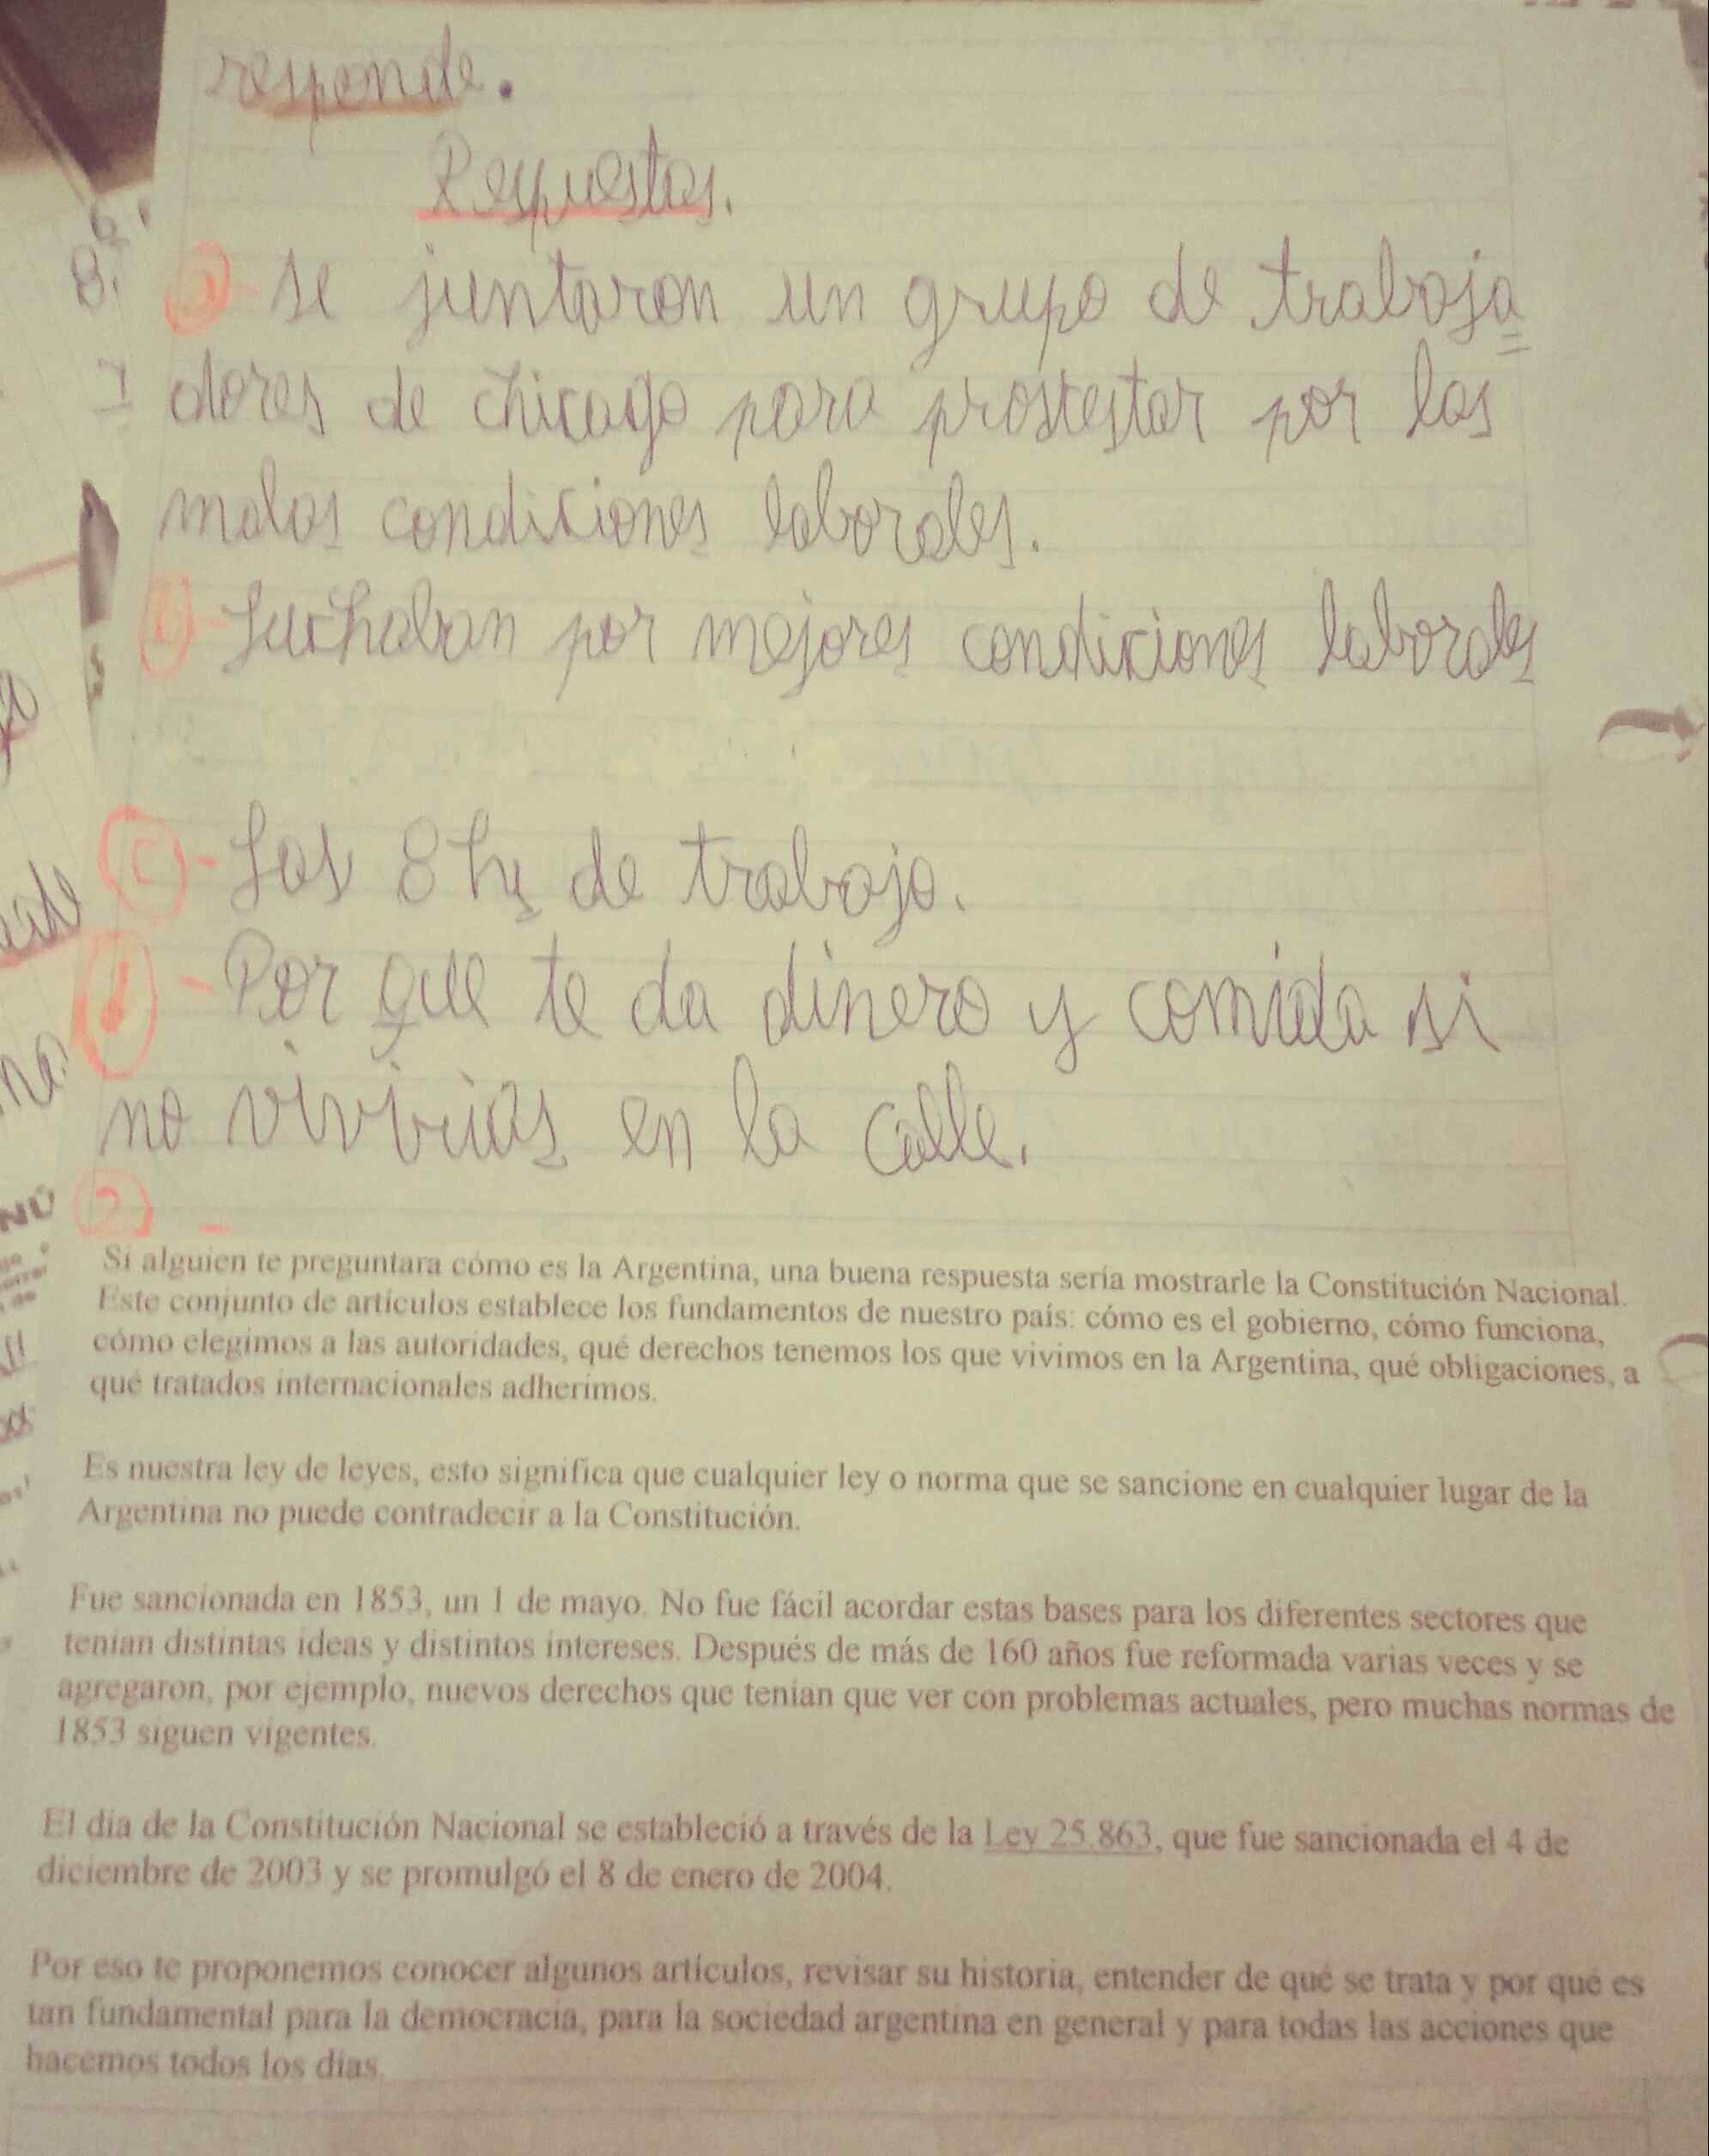 responde.
Respuestas.
a- Se juntaron un grupo de trabaja
dores de chicago para prostestar por las
malas condiciones laborales.
b- Luchaban por mejores condiciones laborales
c- Las 8 hs de trabajo.
d- Por que te da dinero y comida si
no vivirias en la calle.
2 -
Si alguien te preguntara cómo es la Argentina, una buena respuesta sería mostrarle la Constitución Nacional.
Este conjunto de artículos establece los fundamentos de nuestro país: cómo es el gobierno, cómo funciona,
cómo elegimos a las autoridades, qué derechos tenemos los que vivimos en la Argentina, qué obligaciones, a
qué tratados internacionales adherimos.
Es nuestra ley de leyes, esto significa que cualquier ley o norma que se sancione en cualquier lugar de la
Argentina no puede contradecir a la Constitución.
Fue sancionada en 1853, un 1 de mayo. No fue fácil acordar estas bases para los diferentes sectores que
tenían distintas ideas y distintos intereses. Después de más de 160 años fue reformada varias veces y se
agregaron, por ejemplo, nuevos derechos que tenían que ver con problemas actuales, pero muchas normas de
1853 siguen vigentes.
El día de la Constitución Nacional se estableció a través de la Ley 25.863, que fue sancionada el 4 de
diciembre de 2003 y se promulgó el 8 de enero de 2004.
Por eso te proponemos conocer algunos artículos, revisar su historia, entender de qué se trata y por qué es
tan fundamental para la democracia, para la sociedad argentina en general y para todas las acciones que
hacemos todos los días.